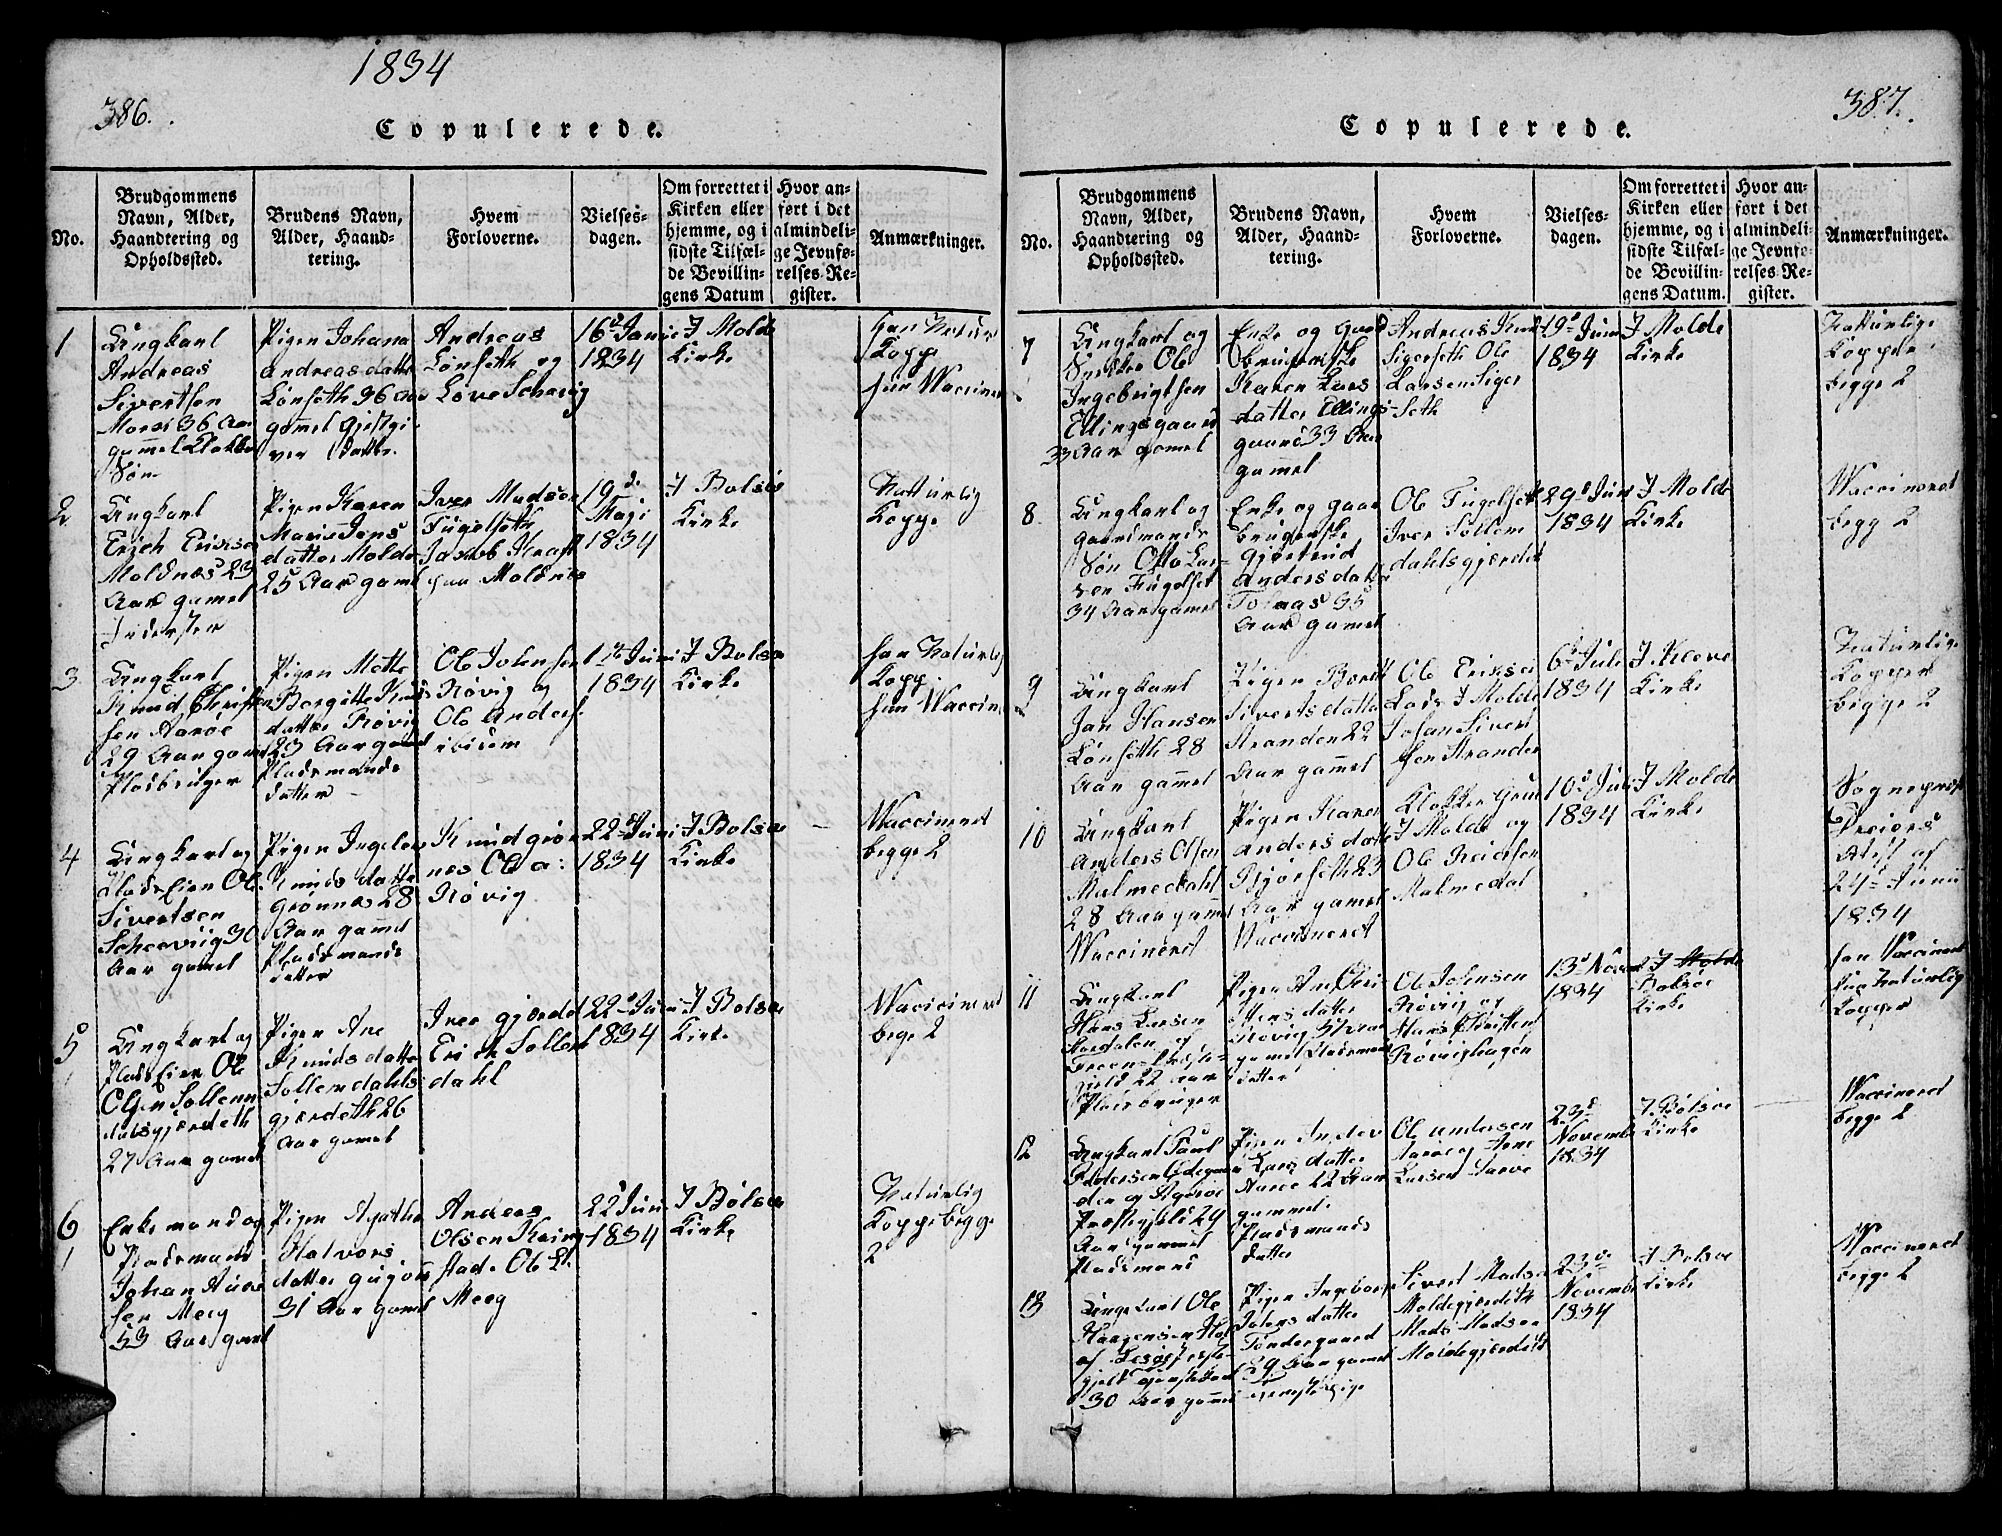 1834
386.
Copulerede.
No.
Brudgommens
Navn, Alder,
Haandtering og
Opholdssted.
Brudens Navn,
Alder, Haand-
tering.
Hvem
Forloverne.
Vielses-
dagen.
Om forrettet i
Kirken eller
hjemme, og i
sidste Tilfæl-
de Bevillin-
gens Datum
Hvor an-
ført i det
almindeli-
ge Jevnfø-
relses-Re-
gister.
Anmærkninger.
1
Ungkarl
Andreas
Sivertsen
36 Aar
gammel Klokker
Søn
Pigen Johana
Andreasdatter
Lønseth 36 Aar
gammel Gjestgi
ver Datter.
Andreas
Lønseth og
16de Janu
1834
I Molde
Kirke
han Natur
Kopp
hun Waccinere
2
Ungkarl
Erich Eriksen
Moldnæs 23
Aar gamel
Inderster
Pigen Karen
Marie Jens
datter Molde
25 Aar gamel
Iver Madsen
Fugelseth
Jacob Kraft
paa Moldnæs
19de
Maji
1834
I Bolsø
Kirke
Natturlig
Kopp
3
Ungkarl
Knud Christen
sen Aarøe
29 Aar gamel
Pladsbruger
Pigen Mette
Bergitte Knuds
datter Røvig
23 Aar gamel
Pladsmands
datter
Ole Johnsen
Røvig og
Ole Anders.
ibidem
1te Juni
1834
I Bolsø
Kirke
han Naturlig
Kopp.
hun Waccine
4
Ungkarl og
Plads Eier Ole
Sivertsen
30
Aar gamel
Pigen Ingeber
Knuds datter
Grønnes 28
Aar gamel
Pladsmands
datter
Knud Grøn
nes Ole a:
Røvig
22de Juni
1834
I Bolsø
Kirke
Waccineret
begge 2
5
Ungkarl og
Plads Eier Ole
Olsen Sollem
dalsgjerdeth
27 Aar gamel
Pigen Ane
Knudsdatter
Sollemdahls
gjerdeth 26
Aar gamel
Iver gjerdet
Erich Sollem
dahl
22de Juni
1834
I Bolsø
Kirke
Waccineret
bege 2
6
Enkemand og
Pladsmand
Johan
sen Meeg
53 Aar gamel
Pigen Agathe
Halvors
datter
31 Aar gamel
Andreas
Olsen Kring
stad. Ole
Meeg
22de Juni
1834
I Bolsø
Kirke
Naturlig
Koppe begge
2
387.
Copulerede.
No.
Brudgommens
Navn, Alder,
Haandtering og
Opholdssted.
Brudens Navn,
Alder, Haand-
tering.
Hvem
Forloverne.
Vielses-
dagen.
Om forrettet i
Kirken eller
hjemme, og i
sidste Tilfæl-
de Bevillin-
gens Datum.
Hvor an-
ført i det
almindeli-
ge Jevnfø-
relses Re-
gister.
Anmærkninger.
7
Ungkarl og
Snekker Ole
Ingebrigtsen
Ellingsgaard
33 Aar gamel
Enke og Gaard
brugerske
Karen Lars
datter Ellings
gaard 33 Aar
gammel
Andreas Knud
Sigerseth Ole
Larsen Siger
seth
19de Juni
1834
I Molde
Kirke
Natturlige
Kopper
begge 2
8
Ungkarl og
Gaardmands
Søn Otto Lar
sen Fugelset
34 Aar gamel
Enke og Gaar
brugerske
Gjertrud
Anders datter
35
Aar gamel
Ole Fugelseth
Iver Sollem
dahlsgjerdet
29de Juni
1834
I Molde
Kirke
Waccineret
begg 2
9
Ungkarl
Jan Hansen
Lønseth 28
Aar gammel
Pigen Bereth
Sivertsdatter
Stranden 22
Aar gammel
Ole Eriksen
I Molde
Johan Sivert
sen Stranden
6de Juli
1834
I Kleve
Kirke
Naturlige
Kopper
begge 2
10
Ungkarl
Anders Olsen
Malmedahl
28 Aar gamel
Waccineret
Pigen Karen
Anders datter
23
Aar gamel
Waccineret
Klokker
I Molde og
Ole
Malmedal
10de Juli
1834
I Molde
Kirke
Sogneprest
Attest af
24de Junii
1834
11
Ungkarl
Hans Larsen
og
22 Aar
Pladsbruger
datter
Røvig
gamel Pladsmands
datter
Ole Johnsen
Røvig og
Hans Christen
Røvighagen
13de Novem
1834
I Molde
Bolsøe
Kirke
han Waccineret
Naturlig
Kopper
12
Ungkarl Paul
Pedersen
Præstegjeld 24
Aar gammel
Pladsmand
Pigen
Lars datter
Aarøe 22 Aar
gammel
Pladsmands
datter
Ole Andersen
Aarøe og Arne
Larsen
23de
Novemb
1834
I Bolsøe
Kirke
Waccineret
begge 2
13
Ungkarl Ole
30 Aar gammel
Pigen Ingeborg
Johns datter
Tøndergaard
29 Aar gamel
Sivert Madsen
Moldegjerdeth
Mads Madsen
Moldegjerdeth
23de
Novemb
1834
I Bolsøe
Kirke
Waccineret
begge 2